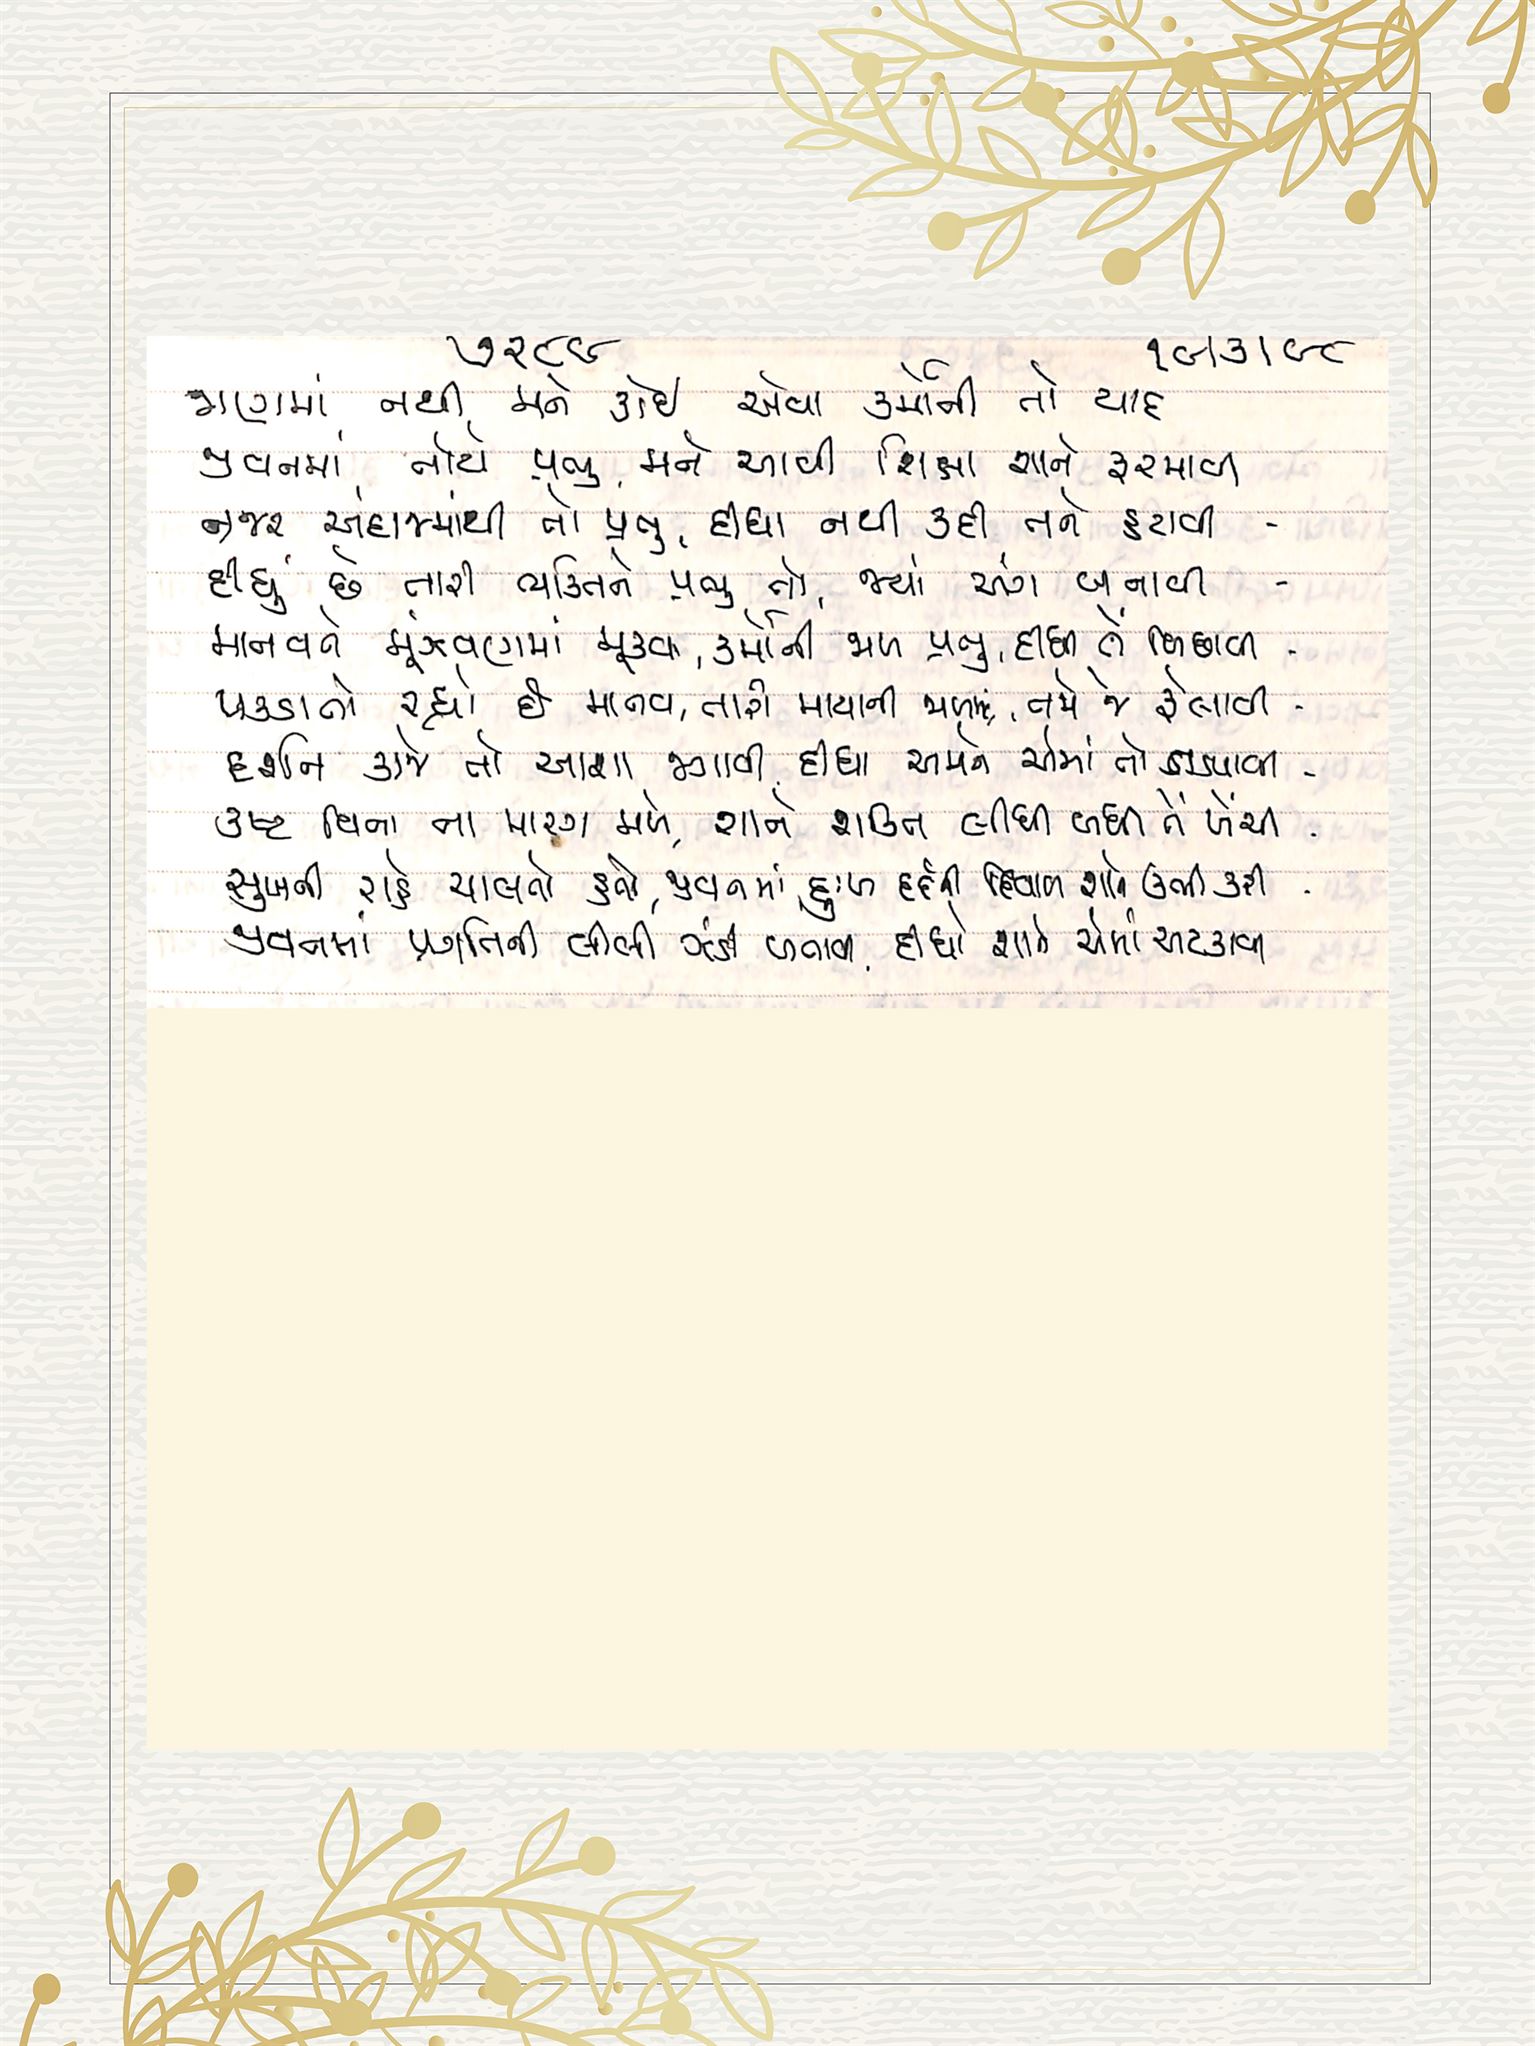 ૭૨૮૬ ૧૯।૩।૯૮
જાણમાં નથી, મને કોઈ એવા કર્મોની તો યાદ
જીવનમાં, તોયે પ્રભુ, મને આવી શિક્ષા શાને ફરમાવી
નજર અંદાજમાંથી તો પ્રભુ, દીધા નથી કદી તને હટાવી -
દીધું છે તારી વ્યક્તિને પ્રભુ તો, જ્યાં અંગ બનાવી -
માનવને મૂંઝવણમાં મૂકવા, કર્મોની જાળ પ્રભુ, દીધી તેં બિછાવી -
પકડાતો રહ્યો છે માનવ, તારી માયાની જાળમાં, તમે જે ફેલાવી -
દર્શન કાજે તો આશા જગાવી, દીધા અમને એમાં તો -
કષ્ટ વિના ના મારગ મળે, શાને શક્તિ લીધી બધી તેં ખેંચી .
સુખની રાહે ચાલતો હતો, જીવનમાં, દુઃખ દર્દની દિવાલ શાને ઉભી કરી .
જીવનમાં પ્રગતિની લીલી ઝંડી બતાવી, દીધો શાને એમાં અટકાવી